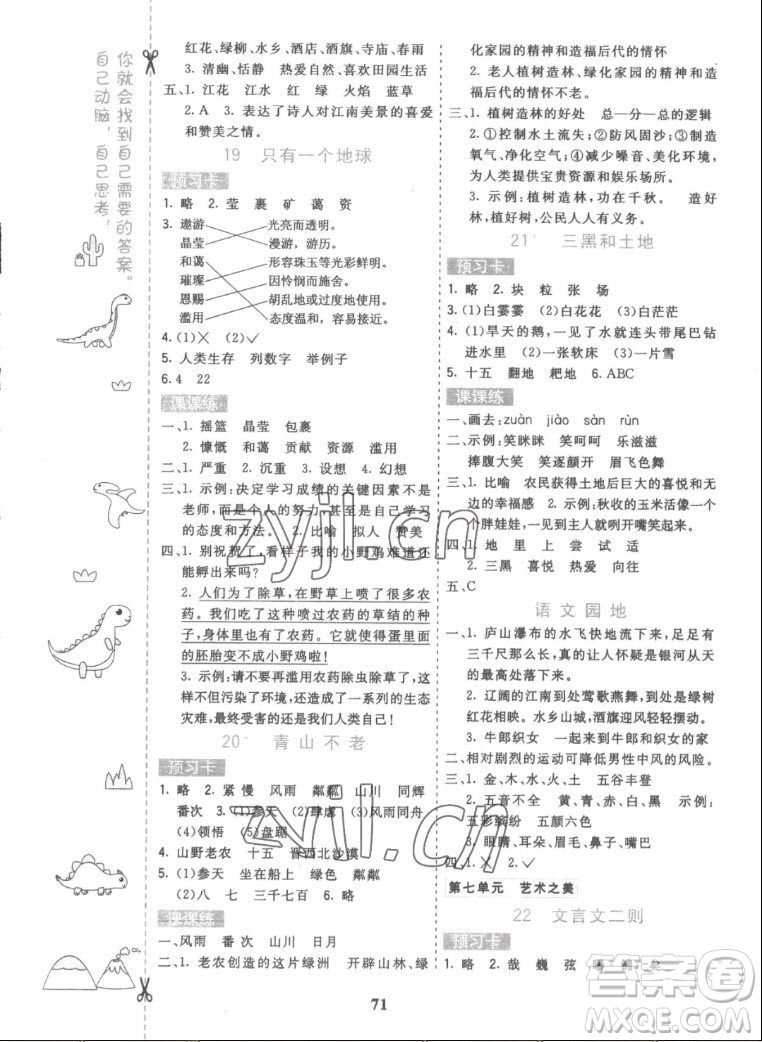 你就会找到自己需要的答案。
自己动脑，自己思考，
红花、绿柳、水乡、酒店、酒旗、寺庙、春雨
3. 清幽、恬静　热爱自然、喜欢田园生活
五、1. 江花　江水　日出　红　绿　火焰　蓝草
2. A　3. 表达了诗人对江南美景的喜爱
和赞美之情。
19　只有一个地球
预习卡
1. 略　2. 莹　裹　矿　蔼　资
3. 遨游　光亮而透明。
晶莹　漫游，游历。
和蔼　形容珠玉等光彩鲜明。
璀璨　因怜悯而施舍。
恩赐　胡乱地或过度地使用。
滥用　态度温和，容易接近。
4. (1)✕　(2)✓
5. 人类生存　列数字　举例子
6. 4　22
课课练
一、1. 摇篮　晶莹　包裹
2. 慷慨　和蔼　贡献　资源　滥用
二、1. 严重　2. 沉重　3. 设想　4. 幻想
三、1. 示例：决定学习成绩的关键因素不是
老师，而是个人的努力，甚至是自己学习
的态度和方法。　2. 比喻　拟人　赞美
四、1. 别祝贺了，看样子我的小野鸡难道还
能孵出来吗？
2. 人们为了除草，在野草上喷了很多农
药。我们吃了这些喷了农药的草结的种
子，身体里有了农药。它长得使得蛋里面
的胚胎变不成小野鸡啦！
3. 示例：请不要滥用农药除虫除草了，这
不但污染了环境，还造成了一系列的生态
灾难，最终受害的还是我们人类自己！
20　青山不老
预习卡
1. 略　2. 紧　慢　风雨　粼粼　山川　同辉
番次　3. (1)参天　(2)肆虐　(3)风雨同舟
(4)领悟　(5)盘踞
4. 山野老农　十五　晋西北沙漠
5. (1)参天　坐在船上　绿色　粼粼
(2)八　七　三千七百　6. 略
课课练
一、风雨　番次　山川　日月
二、1. 老农创造的这片绿洲　开辟山林、绿
化家园的精神和造福后代的情怀
2. 老人植树造林、绿化家园的精神和造
福后代的情怀不老。
三、1. 植树造林的好处　总—分—总的逻辑
2. ①控制水土流失；②防风固沙；③制造
氧气、净化空气；④减少噪音、美化环境，
为人类提供宝贵资源和娱乐场所。
3. 示例：植树造林，功在千秋。　造林护
林，保护好树，公民人人有义务。
21　三黑和土地
预习卡
1. 略　2. 块　粒　张　场
3. (1)白雾雾　(2)白花花　(3)白茫茫
4. (1)旱天的鹅，一见了水就连头带尾巴钻
进水里　(2)一张软床　(3)一片雪
5. 十五　翻地　耙地　6. ABC
课课练
一、画去：zuàn　jiào　sàn　rùn
二、示例：笑眯眯　笑呵呵　乐滋滋
捧腹大笑　笑逐颜开　眉飞色舞
三、1. 比喻　农民获得土地后巨大的喜悦和无
边的幸福感　2. 示例：秋收的玉米活像一个
个胖娃娃，一见到我们就咧开嘴笑起来。
四、1. 地　里　上　尝　试　适
2. 三黑　喜悦　热爱　向往
五、C
语文园地
一、1. 庐山瀑布的水飞快地流下来，足有
三千尺那么高。真的让人怀疑是银河从天
的最高处落下来。
2. 辽阔的江南到处莺歌燕舞，绿树
红花相映。水乡山城，酒旗迎风轻轻摆动。
3. 牛郎织女　银河来到牛郎和织女的家
二、相对剧烈的运动可降低男性中风的风险。
三、1. 金、木、水、火、土　五谷丰登
2. 五音不全　黄、青、赤、白、黑　示例：
五彩缤纷　五颜六色
3. 眼睛、耳朵、眉毛、鼻子、嘴巴
四、1. ✕　2. ✓
第七单元　艺术之美
22　文言文二则
预习卡
1. 略　2. 哉　巍　弦
71
zyjl.cn
zyjl.cn
答案圈
MXQE.COM